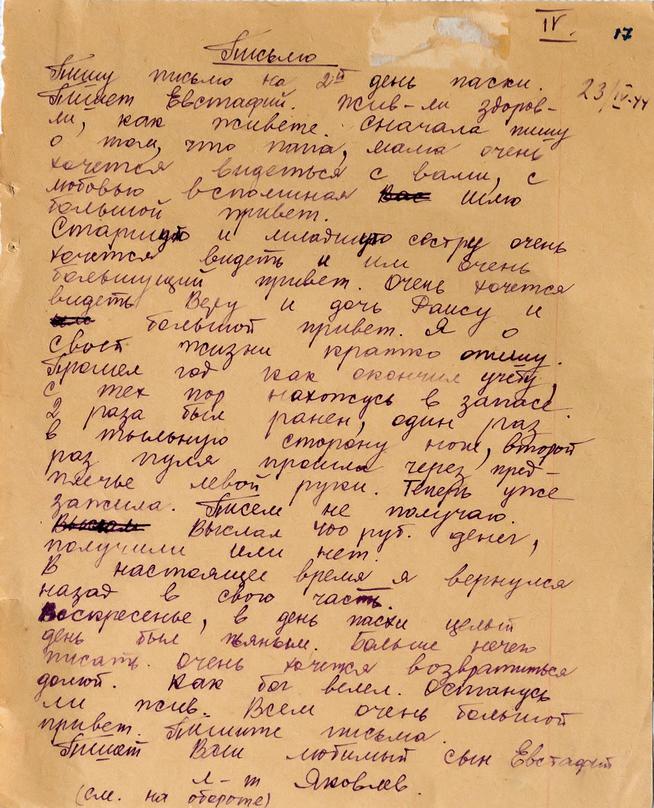 IV.
17
Письмо
23/IV-44
Пишу письмо на 2й день паски.
Пишет Евстафий. Жив-ли здоров-
ли, как живете. Сначала пишу
о том, что папа, мама очень
хочется видеться с вами, с
любовью вспоминая Вас шлю
большой привет.
Старшую и младшую сестру очень
хочется видеть и им очень
большущий привет. Очень хочется
видеть Веру и дочь Раису и
большой привет. Я о
своей жизни кратко опишу.
Прошел год как окончил учебу,
с тех пор нахожусь в запасе.
2 раза был ранен, один раз
в тыльную сторону ноги, второй
раз пуля прошла через пред-
плечье левой руки. Теперь уже
зажила. Писем не получаю.
Выслал Выслал 400 руб. денег,
получили или нет.
В настоящее время я вернулся
назад в свою часть.
Воскресенье, в день пасхи целый
день был пьяным. Больше нечего
писать. Очень хочется возвратиться
домой. Как бог велел. Останусь
ли жив. Всем очень большой
привет. Пишите письма.
Пишет Ваш любимый сын Евстафий
л-т Яковлев.
(см. на обороте)